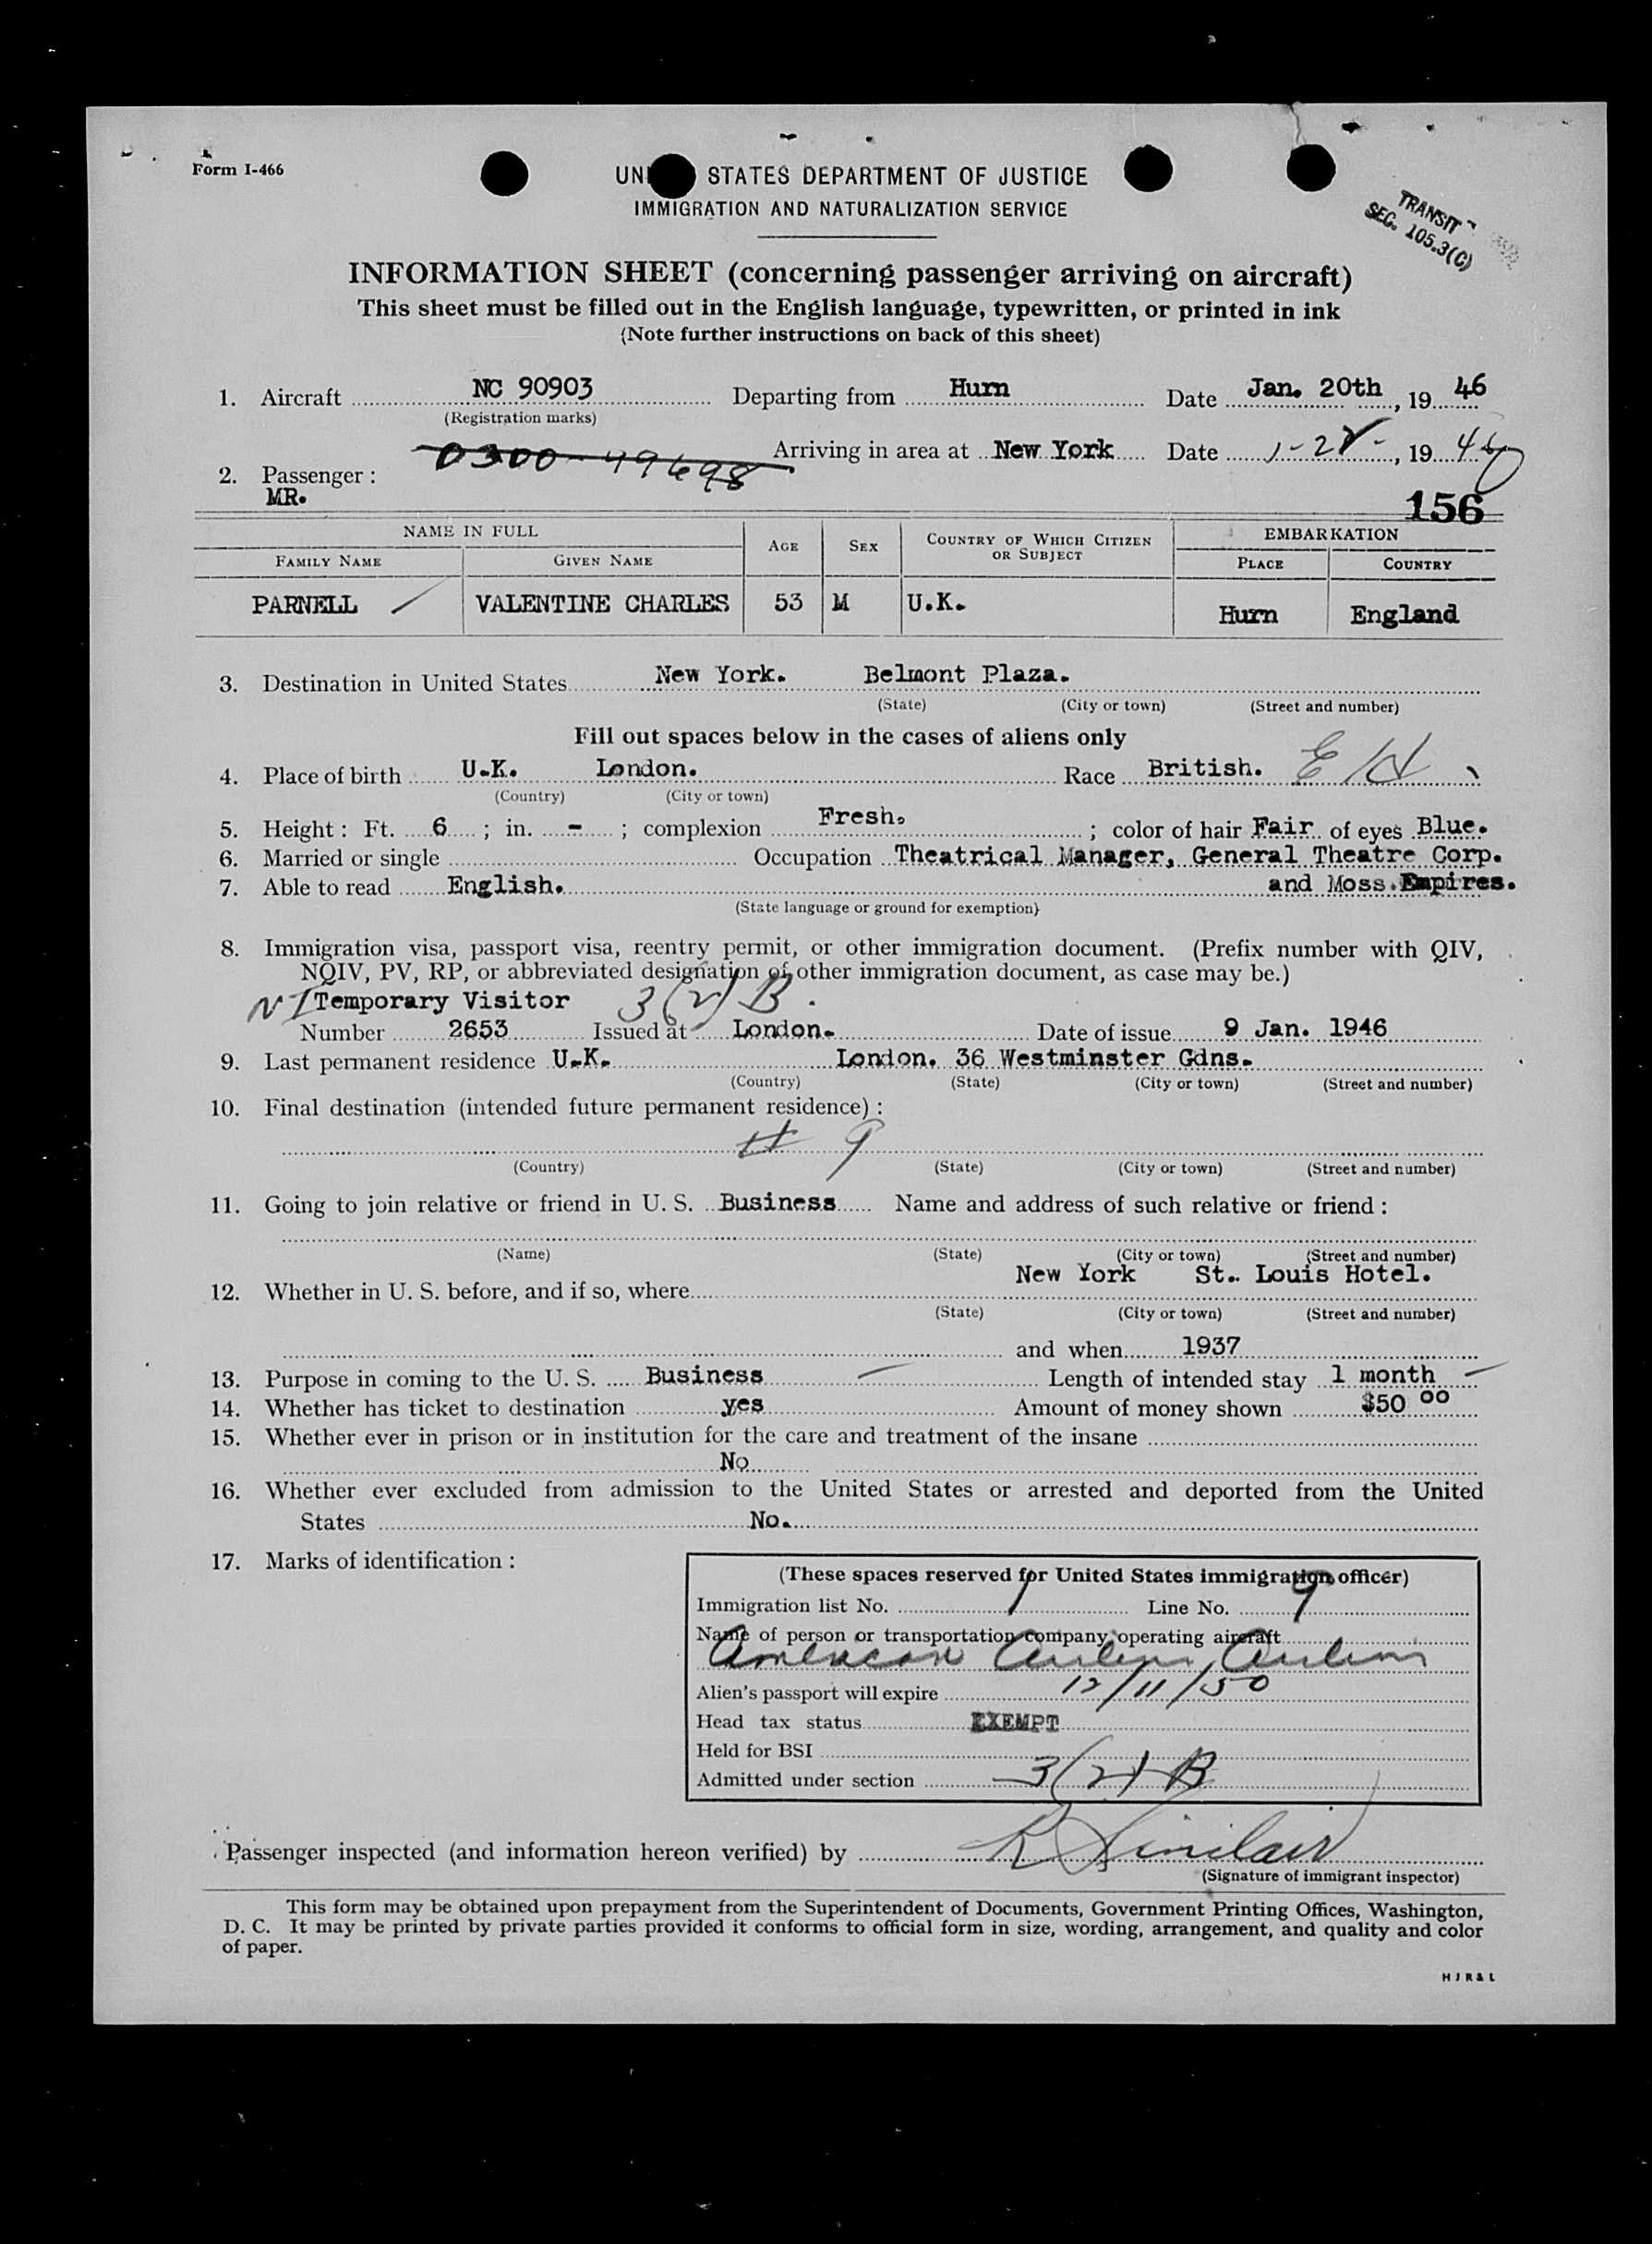 Form I-466
UN STATES DEPARTMENT OF JUSTICE
IMMIGRATION AND NATURALIZATION SERVICE
TRANSIT
SEC. 105.3(C)
INFORMATION SHEET (concerning passenger arriving on aircraft)
This sheet must be filled out in the English language, typewritten, or printed in ink
(Note further instructions on back of this sheet)
1. Aircraft NC 90903 Departing from Hurn Date Jan. 20th, 1946
(Registration marks)
0300-49698 Arriving in area at New York Date 1-22-, 1946
2. Passenger :
MR.
156
NAME IN FULL AGE SEX COUNTRY OF WHICH CITIZEN OR SUBJECT EMBARKATION
FAMILY NAME GIVEN NAME PLACE COUNTRY
PARNELL VALENTINE CHARLES 53 M U.K. Hurn England
3. Destination in United States New York. Belmont Plaza.
(State) (City or town) (Street and number)
Fill out spaces below in the cases of aliens only
4. Place of birth U.K. London. Race British.
(Country) (City or town)
5. Height : Ft. 6 ; in. - ; complexion Fresh. ; color of hair Fair of eyes Blue.
6. Married or single Occupation Theatrical Manager, General Theatre Corp.
7. Able to read English. and Moss Empires.
(State language or ground for exemption)
8. Immigration visa, passport visa, reentry permit, or other immigration document. (Prefix number with QIV,
NQIV, PV, RP, or abbreviated designation of other immigration document, as case may be.)
Temporary Visitor 3(2)B.
Number 2653 Issued at London. Date of issue 9 Jan. 1946
9. Last permanent residence U.K. London. 36 Westminster Gdns.
(Country) (State) (City or town) (Street and number)
10. Final destination (intended future permanent residence) :
(Country) (State) (City or town) (Street and number)
11. Going to join relative or friend in U. S. Business Name and address of such relative or friend :
(Name) (State) (City or town) (Street and number)
New York St. Louis Hotel.
12. Whether in U. S. before, and if so, where
(State) (City or town) (Street and number)
and when 1937
13. Purpose in coming to the U. S. Business Length of intended stay 1 month
14. Whether has ticket to destination yes Amount of money shown $50 00
15. Whether ever in prison or in institution for the care and treatment of the insane
No
16. Whether ever excluded from admission to the United States or arrested and deported from the United
States No.
17. Marks of identification :
(These spaces reserved for United States immigration officer)
Immigration list No. 1 Line No. 9
Name of person or transportation company operating aircraft
American Airlines, Airlines
Alien's passport will expire 12/11/50
Head tax status EXEMPT
Held for BSI
Admitted under section 3(2)B
Passenger inspected (and information hereon verified) by R Sinclair
(Signature of immigrant inspector)
This form may be obtained upon prepayment from the Superintendent of Documents, Government Printing Offices, Washington,
D. C. It may be printed by private parties provided it conforms to official form in size, wording, arrangement, and quality and color
of paper.
H J R & L